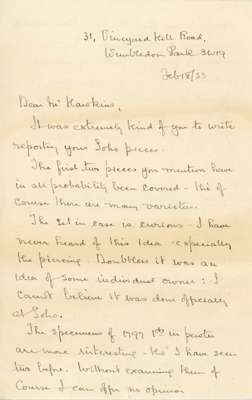 31, Vineyard Hill Road,
Wimbledon Park SW19
Feb 18/33
Dear Mr Hawkins,
It was extremely kind of you to write
reporting your Soho pieces.
The first two pieces you mention have
in all probability been covered - tho' of
course there are many varieties.
The set in case is curious - I have
never heard of this idea - especially
the piercing. Doubtless it was an
idea of some individual owner: I
cannot believe it was done officially
at Soho.
The specimens of 1797 1d in pewter
are more interesting - tho' I have seen
two before. Without examining them of
course I can offer no opinion